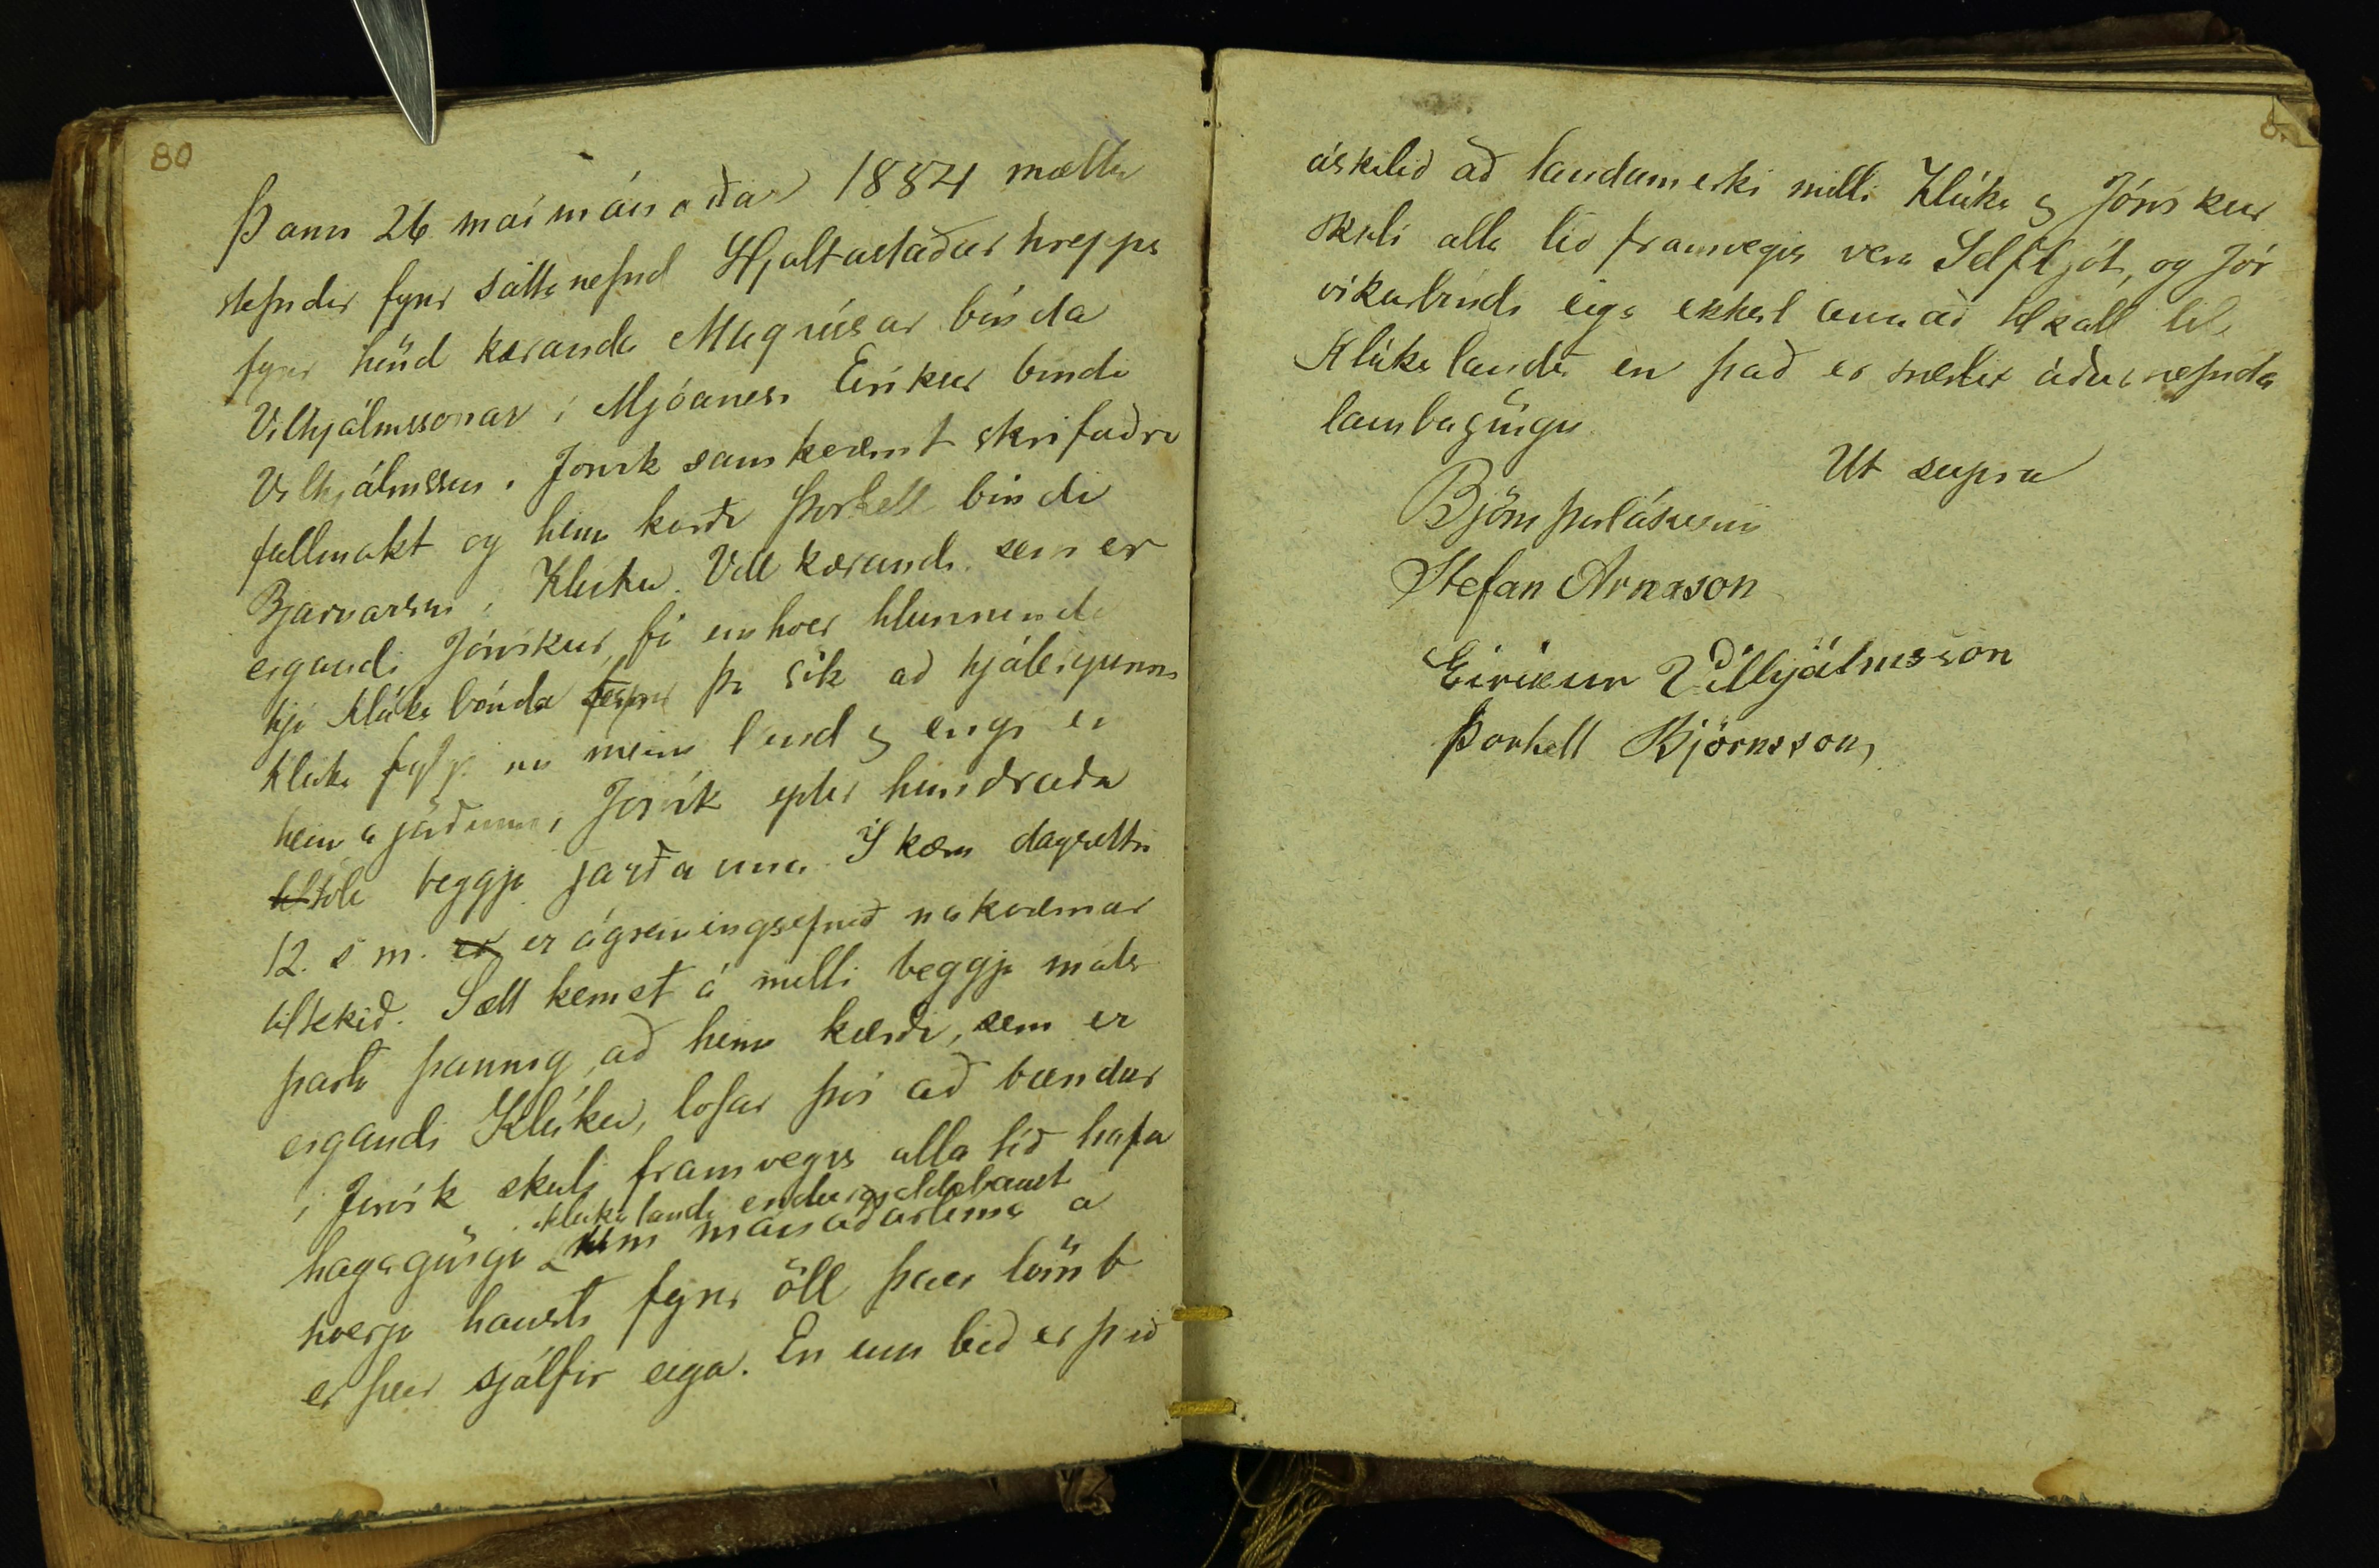 80
Þann 26 maímánaðar 1884 mættu
stefndir fyrir sáttanefnd Hjaltastaðarhrepps
fyrir hönd kæranda Magnúsar bónda
Vilhjálmssonar í Mjóanesi Eiríkur bóndi
Vilhjálmsson í Jórvík samkvæmt skrifaðri
fullmakt og hinn kærði Þorkell bóndi
Bjarnarson í Klúku. Vill kærandi sem er
eigandi Jórvíkur, fá einhver hlunnindi
hjá Klúku bónda fyrir þá sök að hjáleigunni
Klúku fylgi nú meira land og engi en
heimajörðinni Jórvík eptir hundraða
tali beggja jarðanna. Í kæru dagsettri
12. s m. er er ágreiningsefnið nákvæmar
tiltekið. Sætt kemst á milli beggja máls
parta þannig, að hinn kærði, sem er
eigandi Klúku, lofar því að bændur
í Jórvík skuli framvegis alla tíð hafa
í Klúkulandi endurgjaldslaust
hagagöngu um mánaðartíma á
hverju hausti fyrir öll þau lömb
er þeir sjálfir eiga. En um leið er það
áskilið að landamerki milli Klúku og Jórvíkur
skuli alla tíð framvegis vera Selfljót, og Jór
víkurbóndi eigi ekkert annað tilkall til
Klúkulands en það er snertir áðurnefnda
lambagöngu
Ut supra
Björn Þorláksson
Stefan Arnason
Eirikur Vilhjálmsson
Þorkell Björnsson,